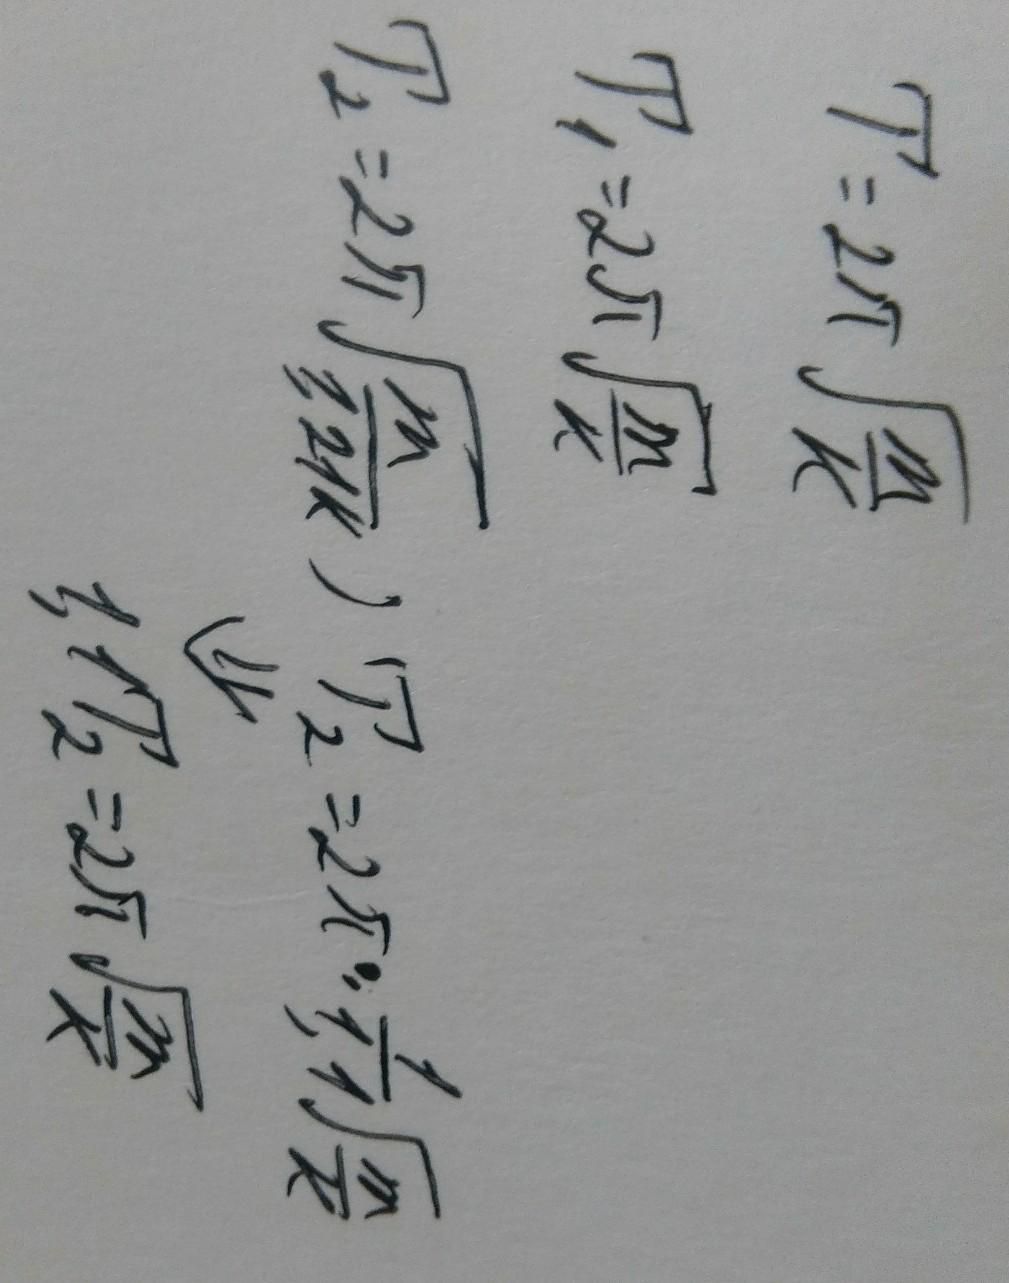 T = 2π√(m/k)
T₁ = 2π√(m/k)
T₂ = 2π√(m/1,21k) , T₂ = 2π · 1/1,1 √(m/k)
⇓
1,1T₂ = 2π√(m/k)